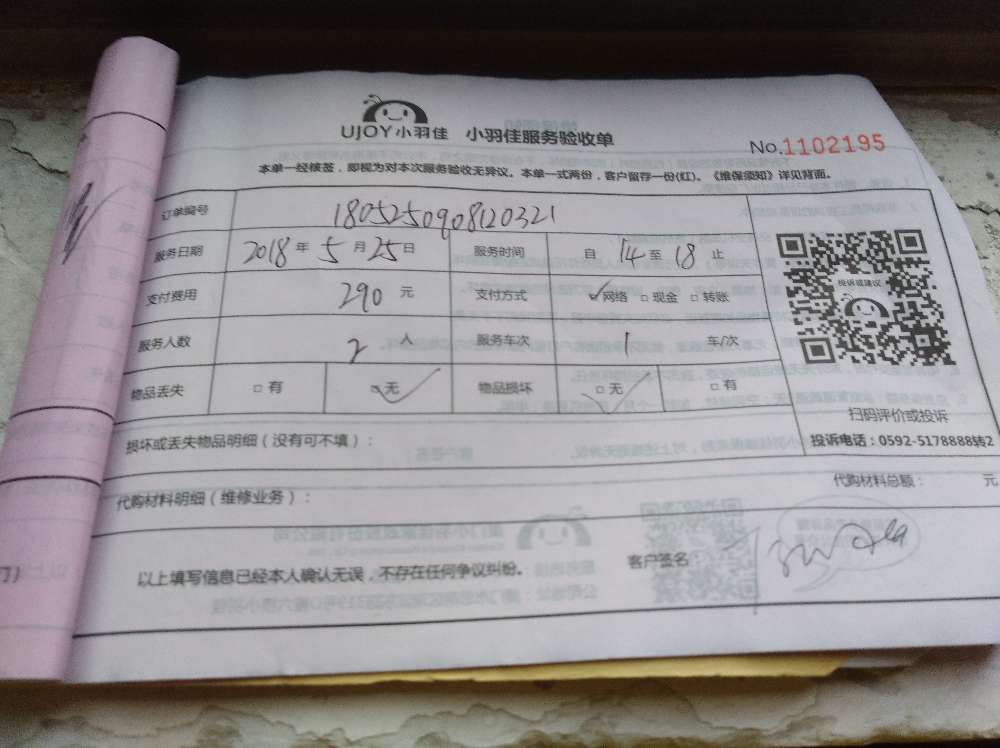 UJOY小羽佳 小羽佳服务验收单
No.1102195
本单一经核签，即视为对本次服务验收无异议。本单一式两份，客户留存一份(红)。《维保须知》详见背面。
订单编号 1805250908120321
服务日期 2018年5月25日 服务时间 自14至18止
支付费用 290元 支付方式 ☑网络 □现金 □转账
服务人数 2人 服务车次 1车/次
物品丢失 □有 ☑无 物品损坏 ☑无 □有
投诉或建议
扫码评价或投诉
投诉电话：0592-5178888转2
损坏或丢失物品明细（没有可不填）：
代购材料明细（维修业务）： 代购材料总额： 元
以上填写信息已经本人确认无误，不存在任何争议纠纷。 客户签名